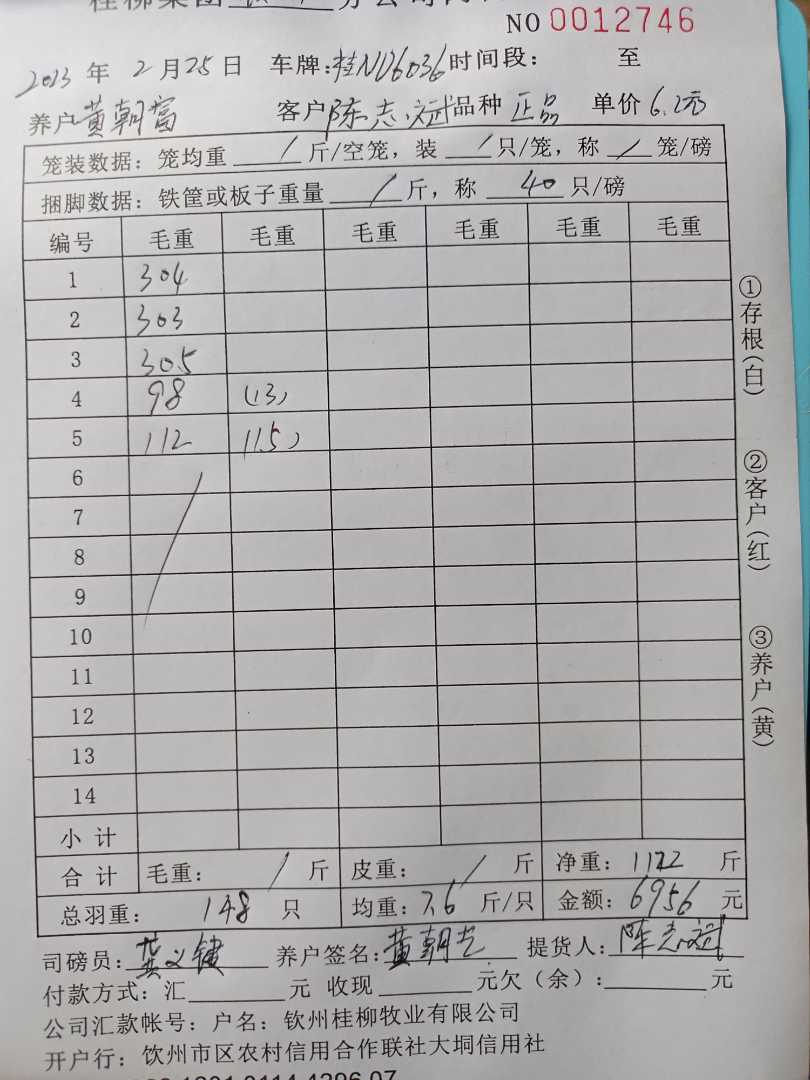 桂柳集团 分公司
NO 0012746
2023 年 2 月 25 日 车牌:桂N06036 时间段: 至
养户 黄朝富 客户 陈志斌 品种 正品 单价 6.2元
笼装数据: 笼均重 / 斤/空笼, 装 / 只/笼, 称 / 笼/磅
捆脚数据: 铁筐或板子重量 / 斤, 称 40 只/磅
编号 毛重 毛重 毛重 毛重 毛重 毛重
1 304
2 303
3 305
4 98 (13)
5 112 (15)
6
7
8
9
10
11
12
13
14
小 计
合 计 毛重: / 斤 皮重: / 斤 净重: 1122 斤
总羽重: 148 只 均重: 7.6 斤/只 金额: 6956 元
司磅员: 养户签名: 黄朝 提货人: 陈志斌
付款方式: 汇 元 收现 元欠(余): 元
公司汇款帐号: 户名: 钦州桂柳牧业有限公司
开户行: 饮州市区农村信用合作联社大垌信用社
①存根(白)
②客户(红)
③养户(黄)